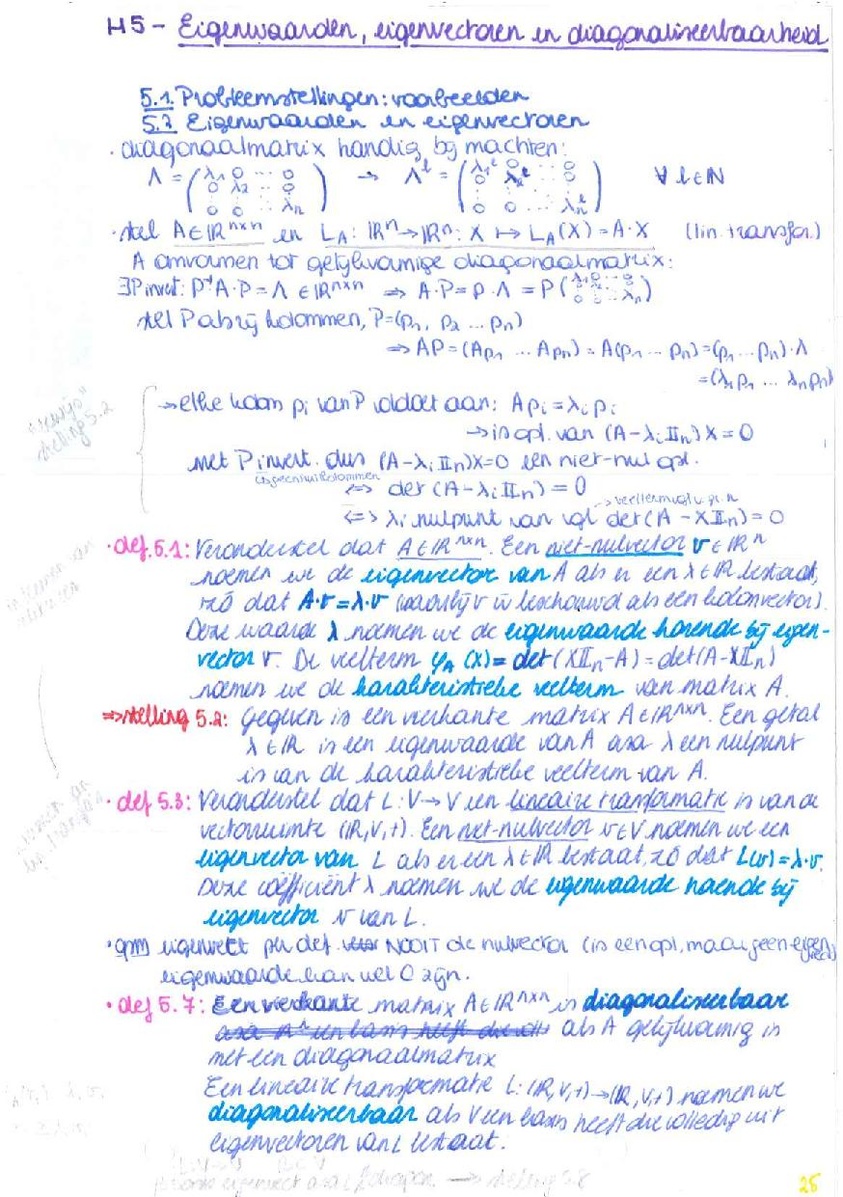 H5 - Eigenwaarden, eigenvectoren en diagonaliseerbaarheid
5.1. Probleemstellingen: voorbeelden
5.2 Eigenwaarden en eigenvectoren
· diagonaalmatrix handig bij machten:
Λ = (λ1 0 ... 0 / 0 λ2 ... 0 / 0 0 ... λn) → Λ^l = (λ1^l 0 ... 0 / 0 λ2^l ... 0 / 0 0 ... λn^l) ∀ l∈ℕ
· stel A∈ℝ^n×n en L_A: ℝ^n→ℝ^n: X ↦ L_A(X) = A·X (lin. transfor.)
A omvormen tot gelijkvormige diagonaalmatrix:
∃P invert: P^-1 A·P = Λ ∈ℝ^n×n ⇒ A·P = P·Λ = P(λ1 0 ... 0 / 0 λ2 ... 0 / 0 0 ... λn)
stel P abrij kolommen, P=(p1, p2 ... pn)
⇒ AP = (Ap1 ... Apn) = A(p1 ... pn) = (p1 ... pn)·Λ
= (λ1p1 ... λnpn)
"bewijs" stelling 5.2
→ elke kolom pi van P voldoet aan: Api = λipi
→ is opl. van (A-λi𝕀n)X = 0
met P invert. dus (A-λi𝕀n)X=0 een niet-nul opl.
is geen nulkolommen
⇔ det(A-λi𝕀n) = 0
→ veeltermvgl v. gr. n
⇔ λi nulpunt van vgl det(A-X𝕀n) = 0
· def. 5.1: Veronderstel dat A∈ℝ^n×n. Een niet-nulvector v∈ℝ^n
noemen we de eigenvector van A als er een λ∈ℝ bestaat,
zó dat A·v = λ·v (waarbij v w beschouwd als een kolomvector).
Deze waarde λ noemen we de eigenwaarde horende bij eigen-
vector v. De veelterm φ_A(X) = det(X𝕀n-A) = det(A-X𝕀n)
noemen we de karakteristieke veelterm van matrix A.
⇒ stelling 5.2: Gegeven is een vierkante matrix A∈ℝ^n×n. Een getal
λ∈ℝ is een eigenwaarde van A asa λ een nulpunt
is van de karakteristieke veelterm van A.
· def 5.3: Veronderstel dat L: V→V een lineaire transformatie is van de
vectorruimte (ℝ,V,+). Een niet-nulvector v∈V noemen we een
eigenvector van L als er een λ∈ℝ bestaat, zó dat L(v) = λ·v.
Deze coëfficiënt λ noemen we de eigenwaarde horende bij
eigenvector v van L.
· opm eigenvect per def. NOOIT de nulvector (is een opl, maar geen eigenvect)
eigenwaarde kan wel 0 zijn.
· def 5.7: Een vierkante matrix A∈ℝ^n×n is diagonaliseerbaar
als A gelijkvormig is
met een diagonaalmatrix
Een lineaire transformatie L: (ℝ,V,+)→(ℝ,V,+) noemen we
diagonaliseerbaar als V een basis heeft die volledig uit
eigenvectoren van L bestaat.
→ stelling 5.8
25